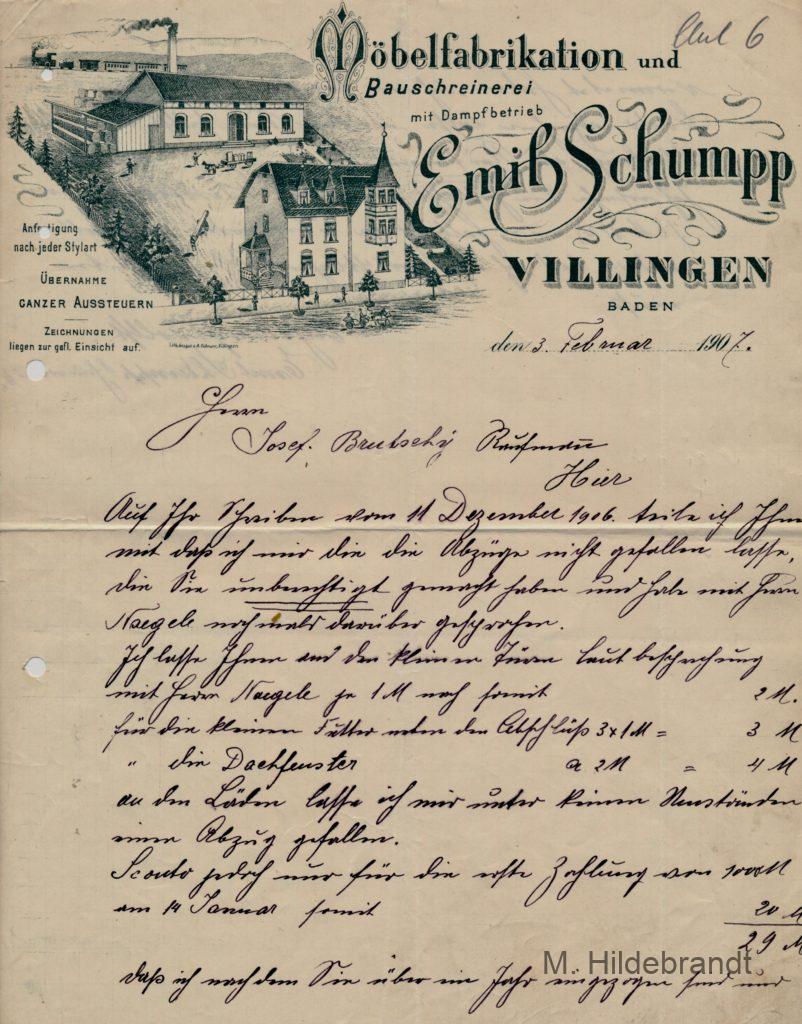 Möbelfabrikation und
Bauschreinerei
mit Dampfbetrieb
Emil Schumpp
VILLINGEN
BADEN
Anfertigung
nach jeder Stylart
ÜBERNAHME
GANZER AUSSTEUERN
ZEICHNUNGEN
liegen zur gefl. Einsicht auf.
6
den 3. Februar 1907.
Herrn
Josef. Brutschÿ Kaufmann
Hier
Auf Ihr Schreiben vom 11 Dezember 1906. teile ich Ihnen
mit daß ich mir die die Abzüge nicht gefallen lasse,
die Sie unberechtigt gemacht haben und habe mit Herrn
Naegele nochmals darüber gesprochen.
Ich lasse Ihnen an den kleinen Türen laut besprechung
mit Herrn Naegele je 1 M nach somit 2 M.
für die kleinen Futter neben den Abschluß 3 x 1 M = 3 M
" die Dachfenster a 2 M = 4 M
an den Läden lasse ich mir unter keinen Umständen
einen Abzug gefallen.
Sconto jedoch nur für die erste Zahlung von 1000 M
am 14 Januar somit 20 M
29 M
M. Hildebrandt
daß ich nach dem Sie über ein Jahr eingezogen sind und